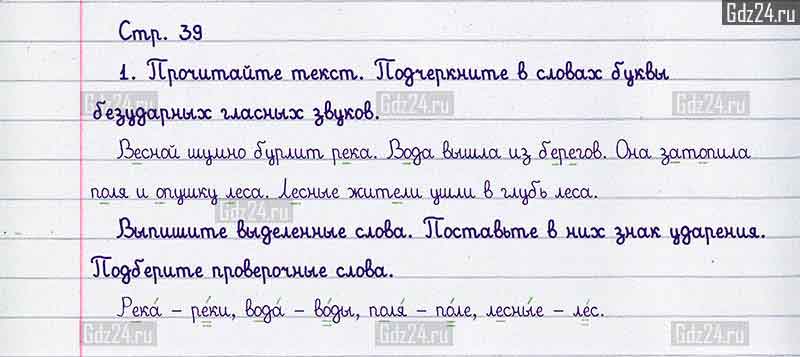 Gdz24.ru
Стр. 39
1. Прочитайте текст. Подчеркните в словах буквы
Gdz24.ru Gdz24.ru Gdz24.ru
безударных гласных звуков.
Весной шумно бурлит река. Вода вышла из берегов. Она затопила
поля и опушку леса. Лесные жители ушли в глубь леса.
Gdz24.ru Gdz24.ru
Выпишите выделенные слова. Поставьте в них знак ударения.
Подберите проверочные слова.
Река́ – ре́ки, вода́ – во́ды, поля́ – по́ле, лесны́е – ле́с.
Gdz24.ru Gdz24.ru Gdz24.ru